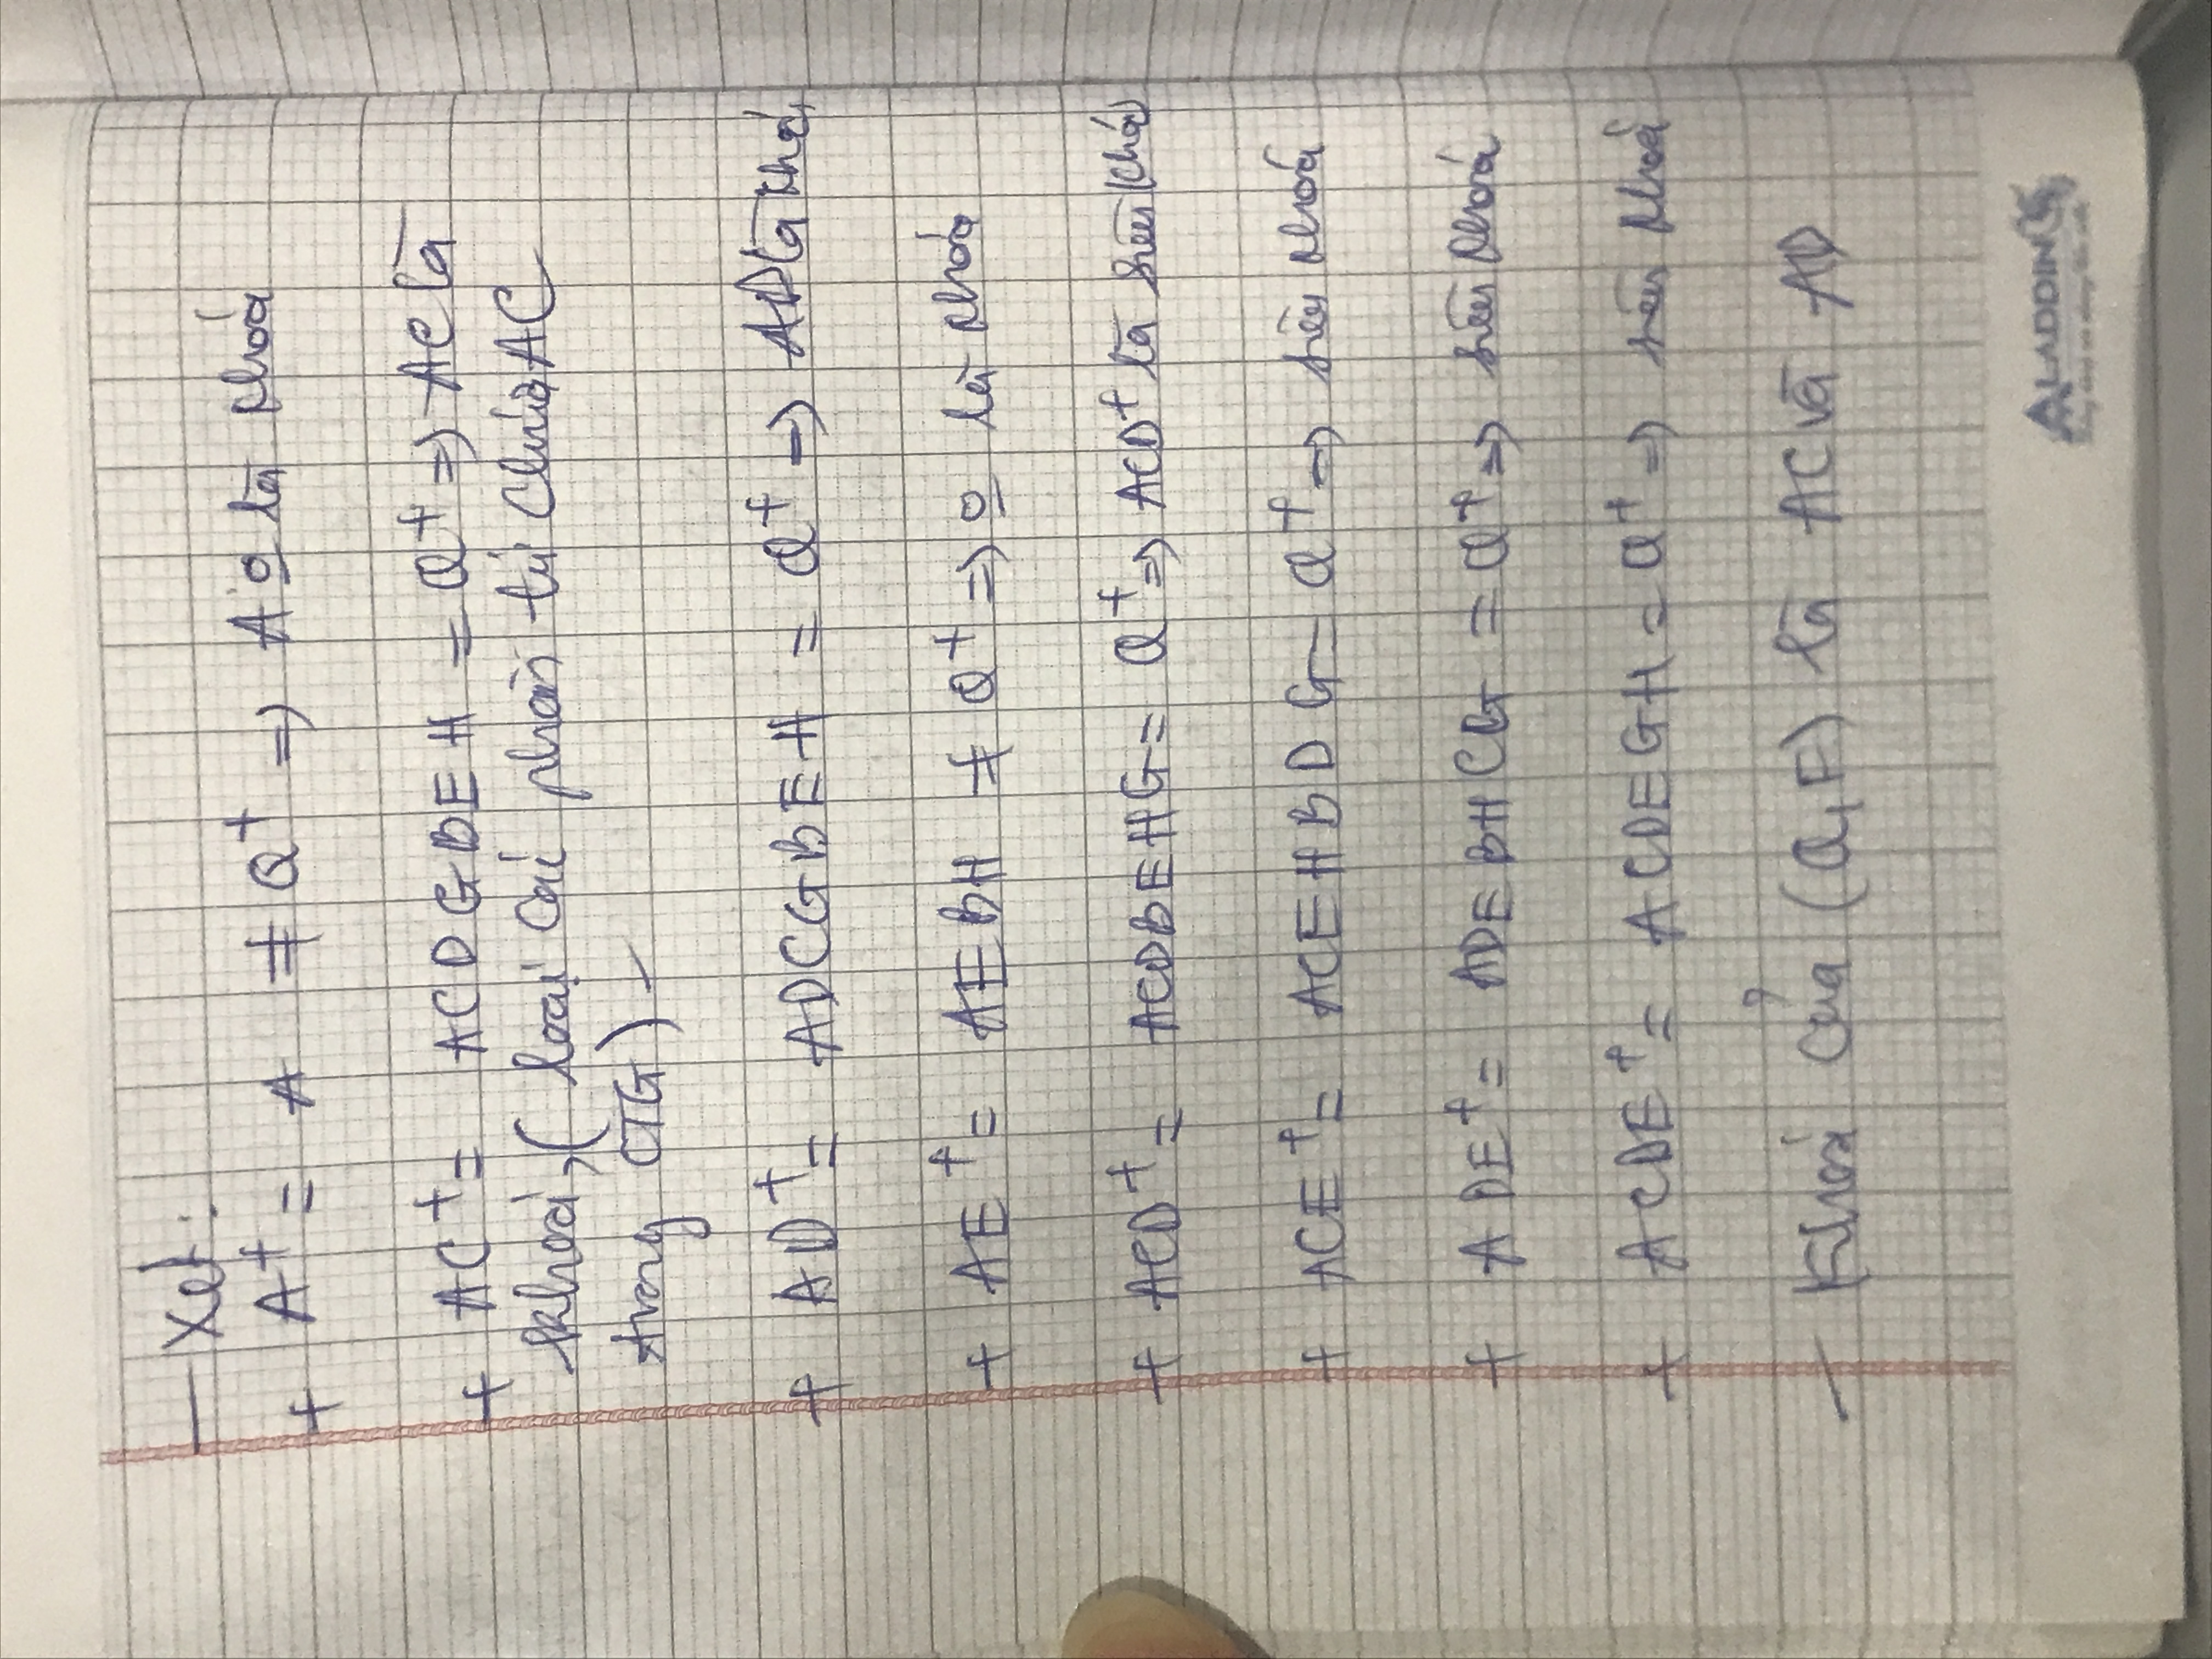 — Xét:
+ A⁺ = A ≠ Q⁺ => A o̲ là khoá
+ AC⁺ = ACDGBEH = Q⁺ => AC là
khoá, ( loại các phần tử chứa AC
trong CTG) –
+ AD⁺ = ADCGBEH = Q⁺ => AD là khoá
+ AE⁺ = AEBH ≠ Q⁺ => o̲ là khoá
+ ACD⁺ = ACDBEHG = Q⁺ => ACD⁺ là siêu khoá
+ ACE⁺ = ACEHBDG = Q⁺ => siêu khoá
+ ADE⁺ = ADEBHCG = Q⁺ => siêu khoá
+ ACDE⁺ = ACDEGH = Q⁺ => siêu khoá
— Khoá của (Q,F) là AC và AD
ALADDIN